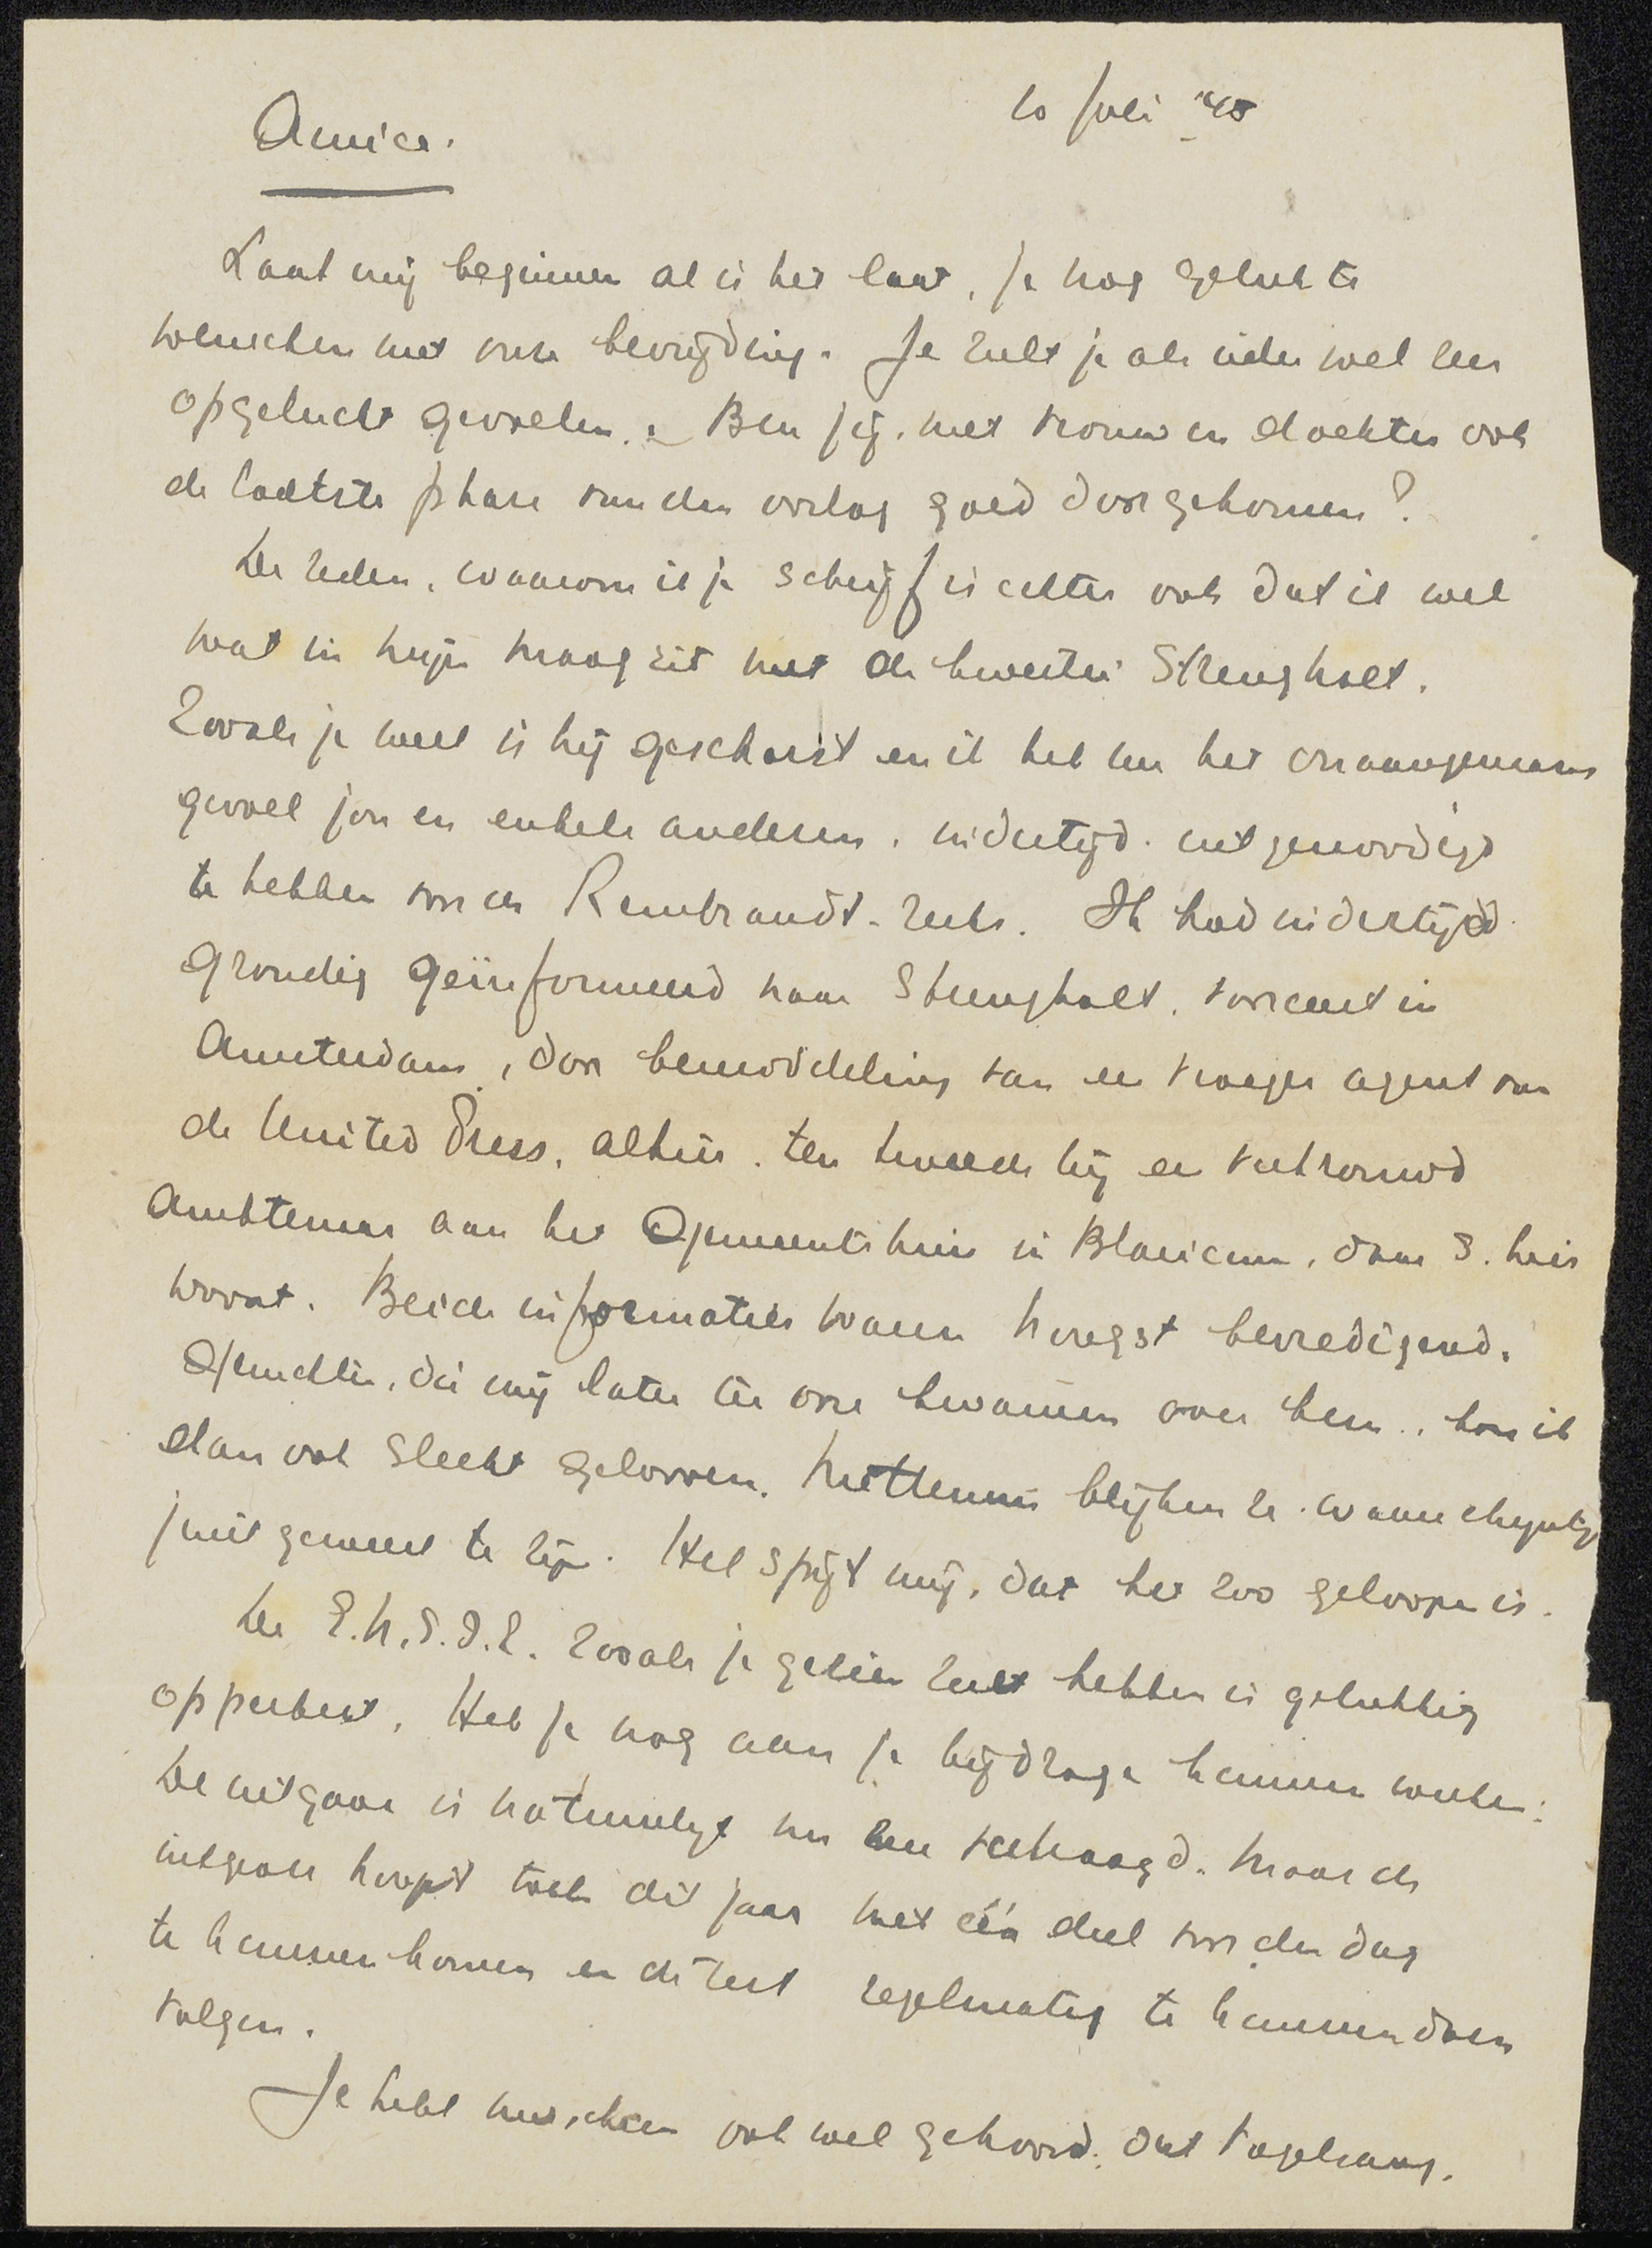 10 Juli '45
Amice.
Laat mij beginnen al is het laat, je nog geluk te
wenschen met onze bevrijding. Je zult je als ieder wel zeer
opgelucht gevoelen. Ben jij, met vrouw en dochter ook
de laatste phase van den oorlog goed doorgekomen?
De reden, waarom ik je schrijf is echter ook dat ik wel
wat in mijn maag zit met de kwestie Strengholt.
Zooals je weet is hij geschorst en ik heb nu het onaangename
gevoel jou en enkele anderen, indertijd uitgenoodigd
te hebben voor de Rembrandt-reeks. Ik had indertijd
grondig geïnformeerd naar Strengholt, vooreerst in
Amsterdam, door bemiddeling van een vroeger agent van
de United Press, alhier, ten tweede bij een vertrouwd
ambtenaar aan het Gemeentehuis in Blaricum, daar S. hier
woont. Beide informaties waren hoogst bevredigend.
Geruchten, die mij later ter oore kwamen over hem, kon ik
dan ook slecht gelooven. Niettemin blijken ze waarschijnlijk
juist geweest te zijn. Het spijt mij, dat het zoo geloopen is.
De E.N.S.I.E. zooals je gezien zult hebben is gelukkig
opperbest. Heb je nog aan je bijdrage kunnen werken?
De uitgave is natuurlijk nu zeer vertraagd. Maar de
uitgever hoopt toch dit jaar met één deel voor den dag
te kunnen komen en de rest regelmatig te kunnen doen
volgen.
Je hebt misschien ook wel gehoord, dat Vogelsang,